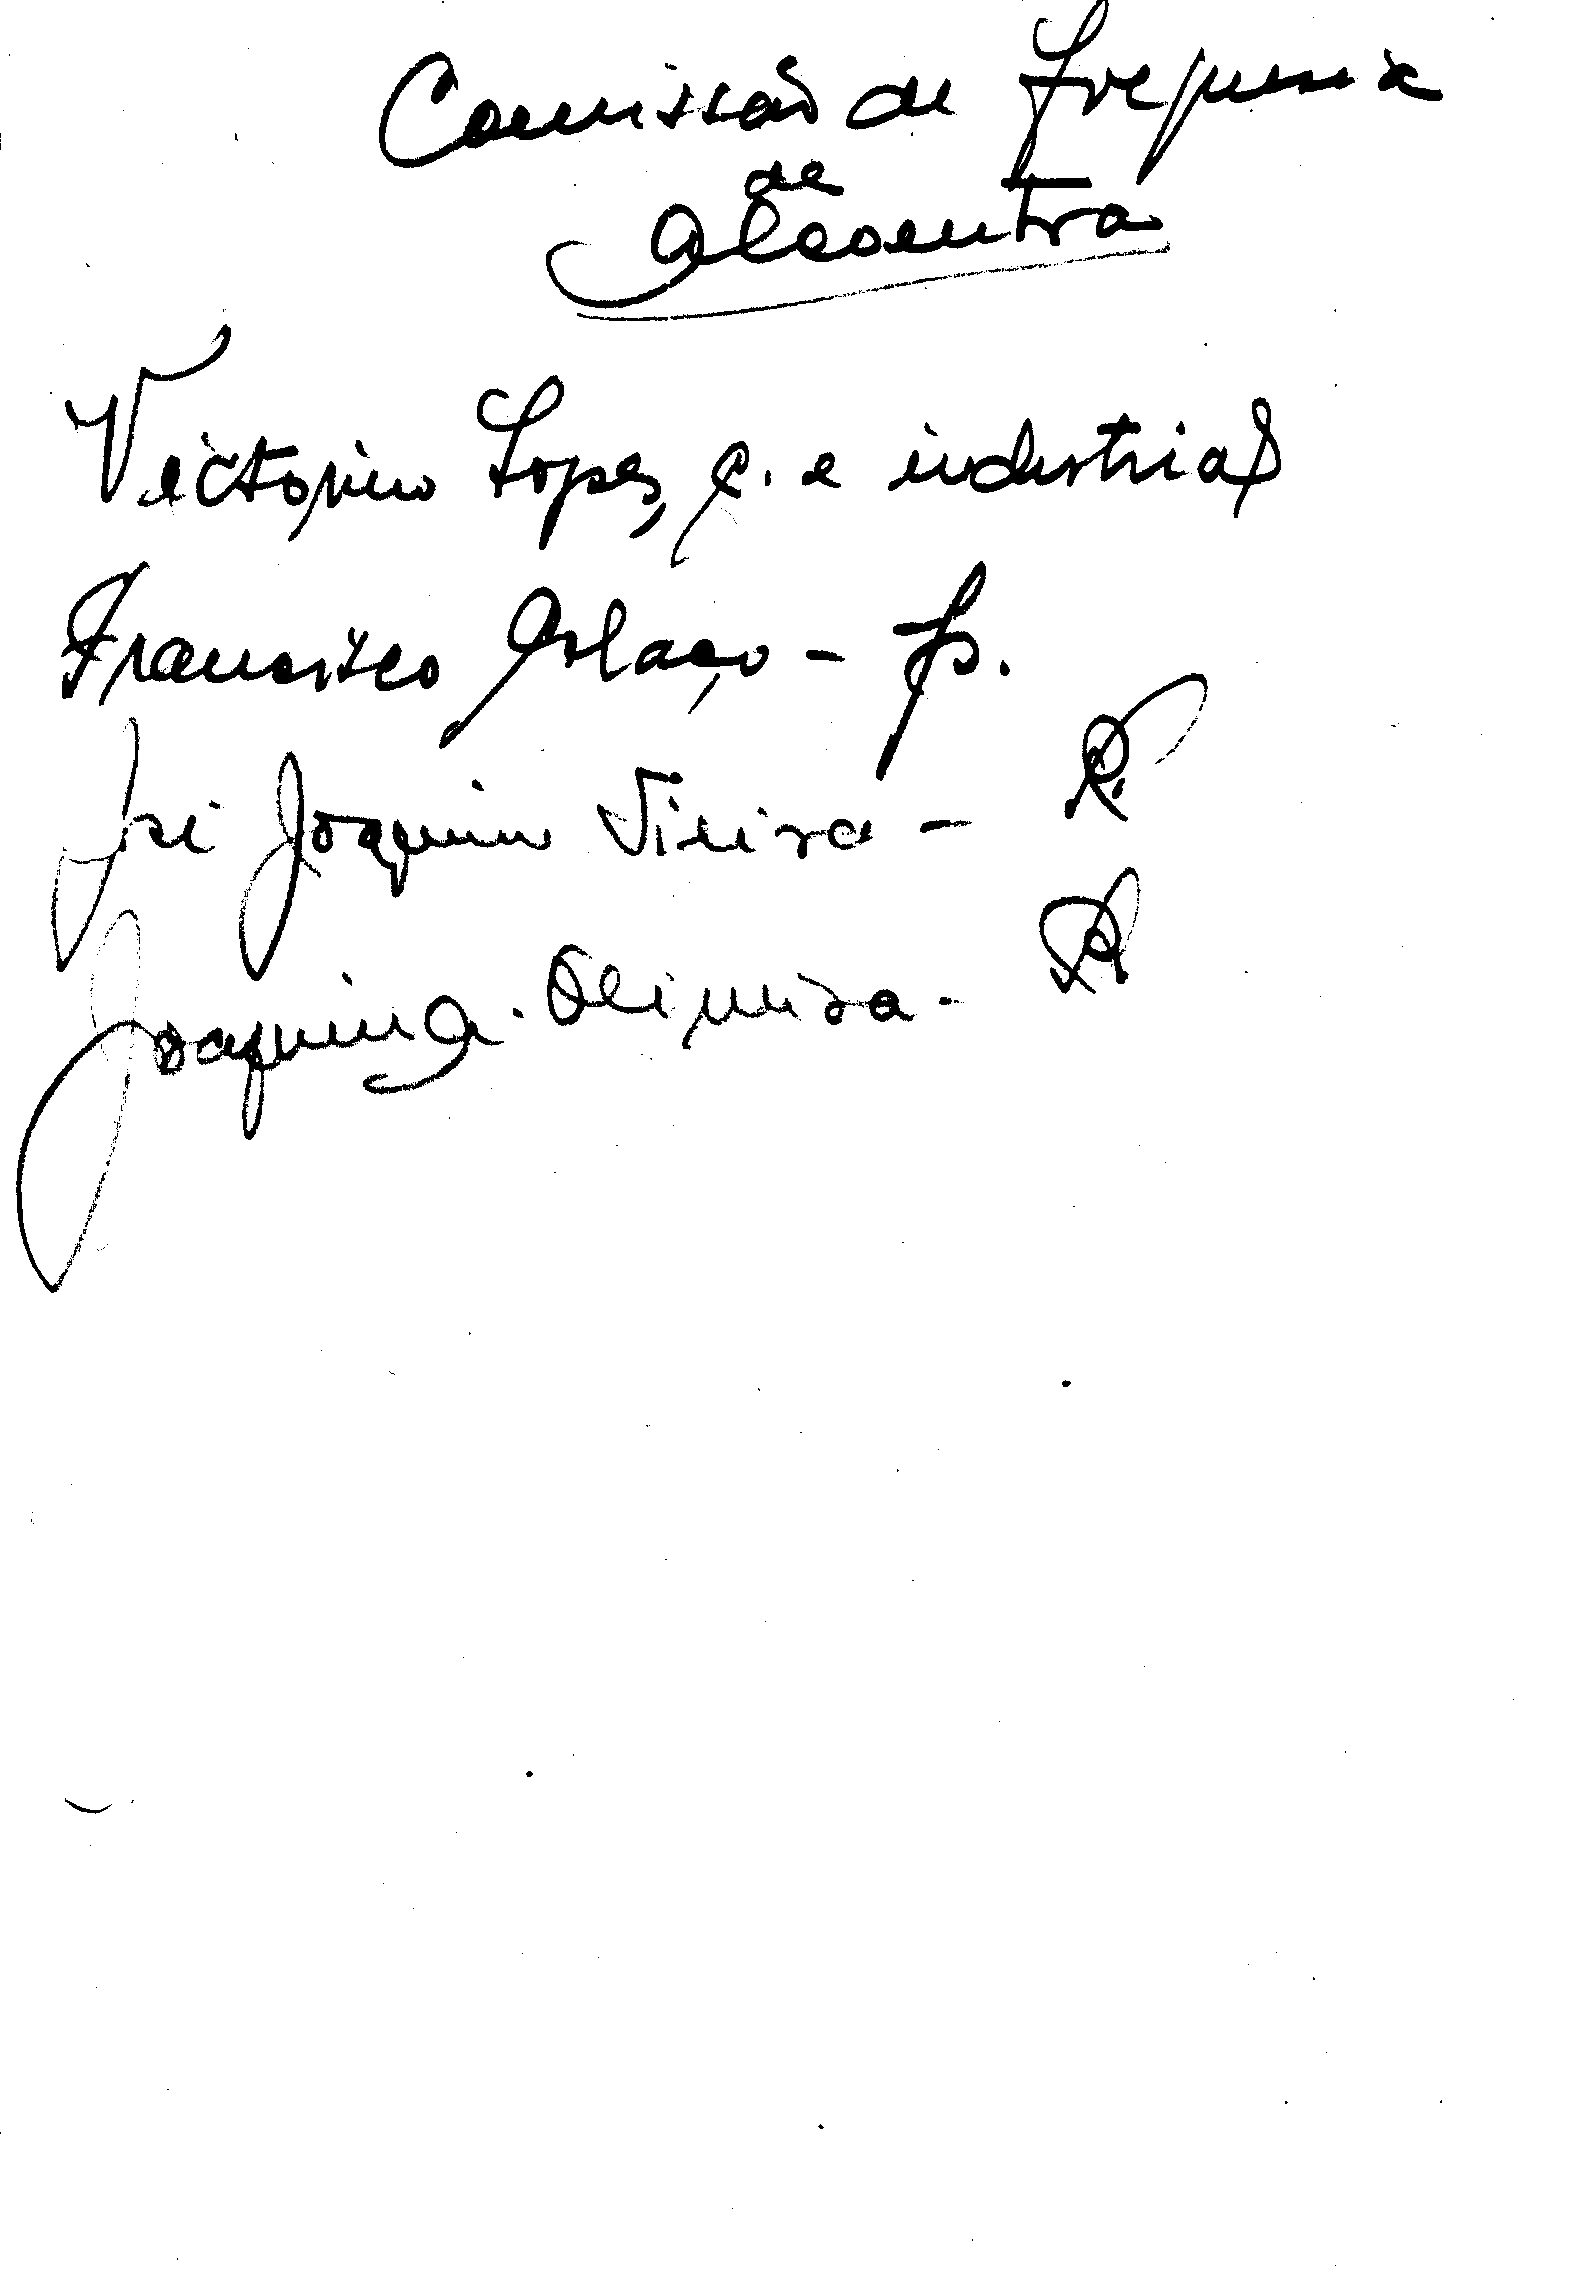 Comissão de Freguesia
de
Alcoentra
Victorino Lopes, p. e industrial
Francisco Colaço - p.
José Joaquim Vieira - R.
Joaquim A. Oliveira - R